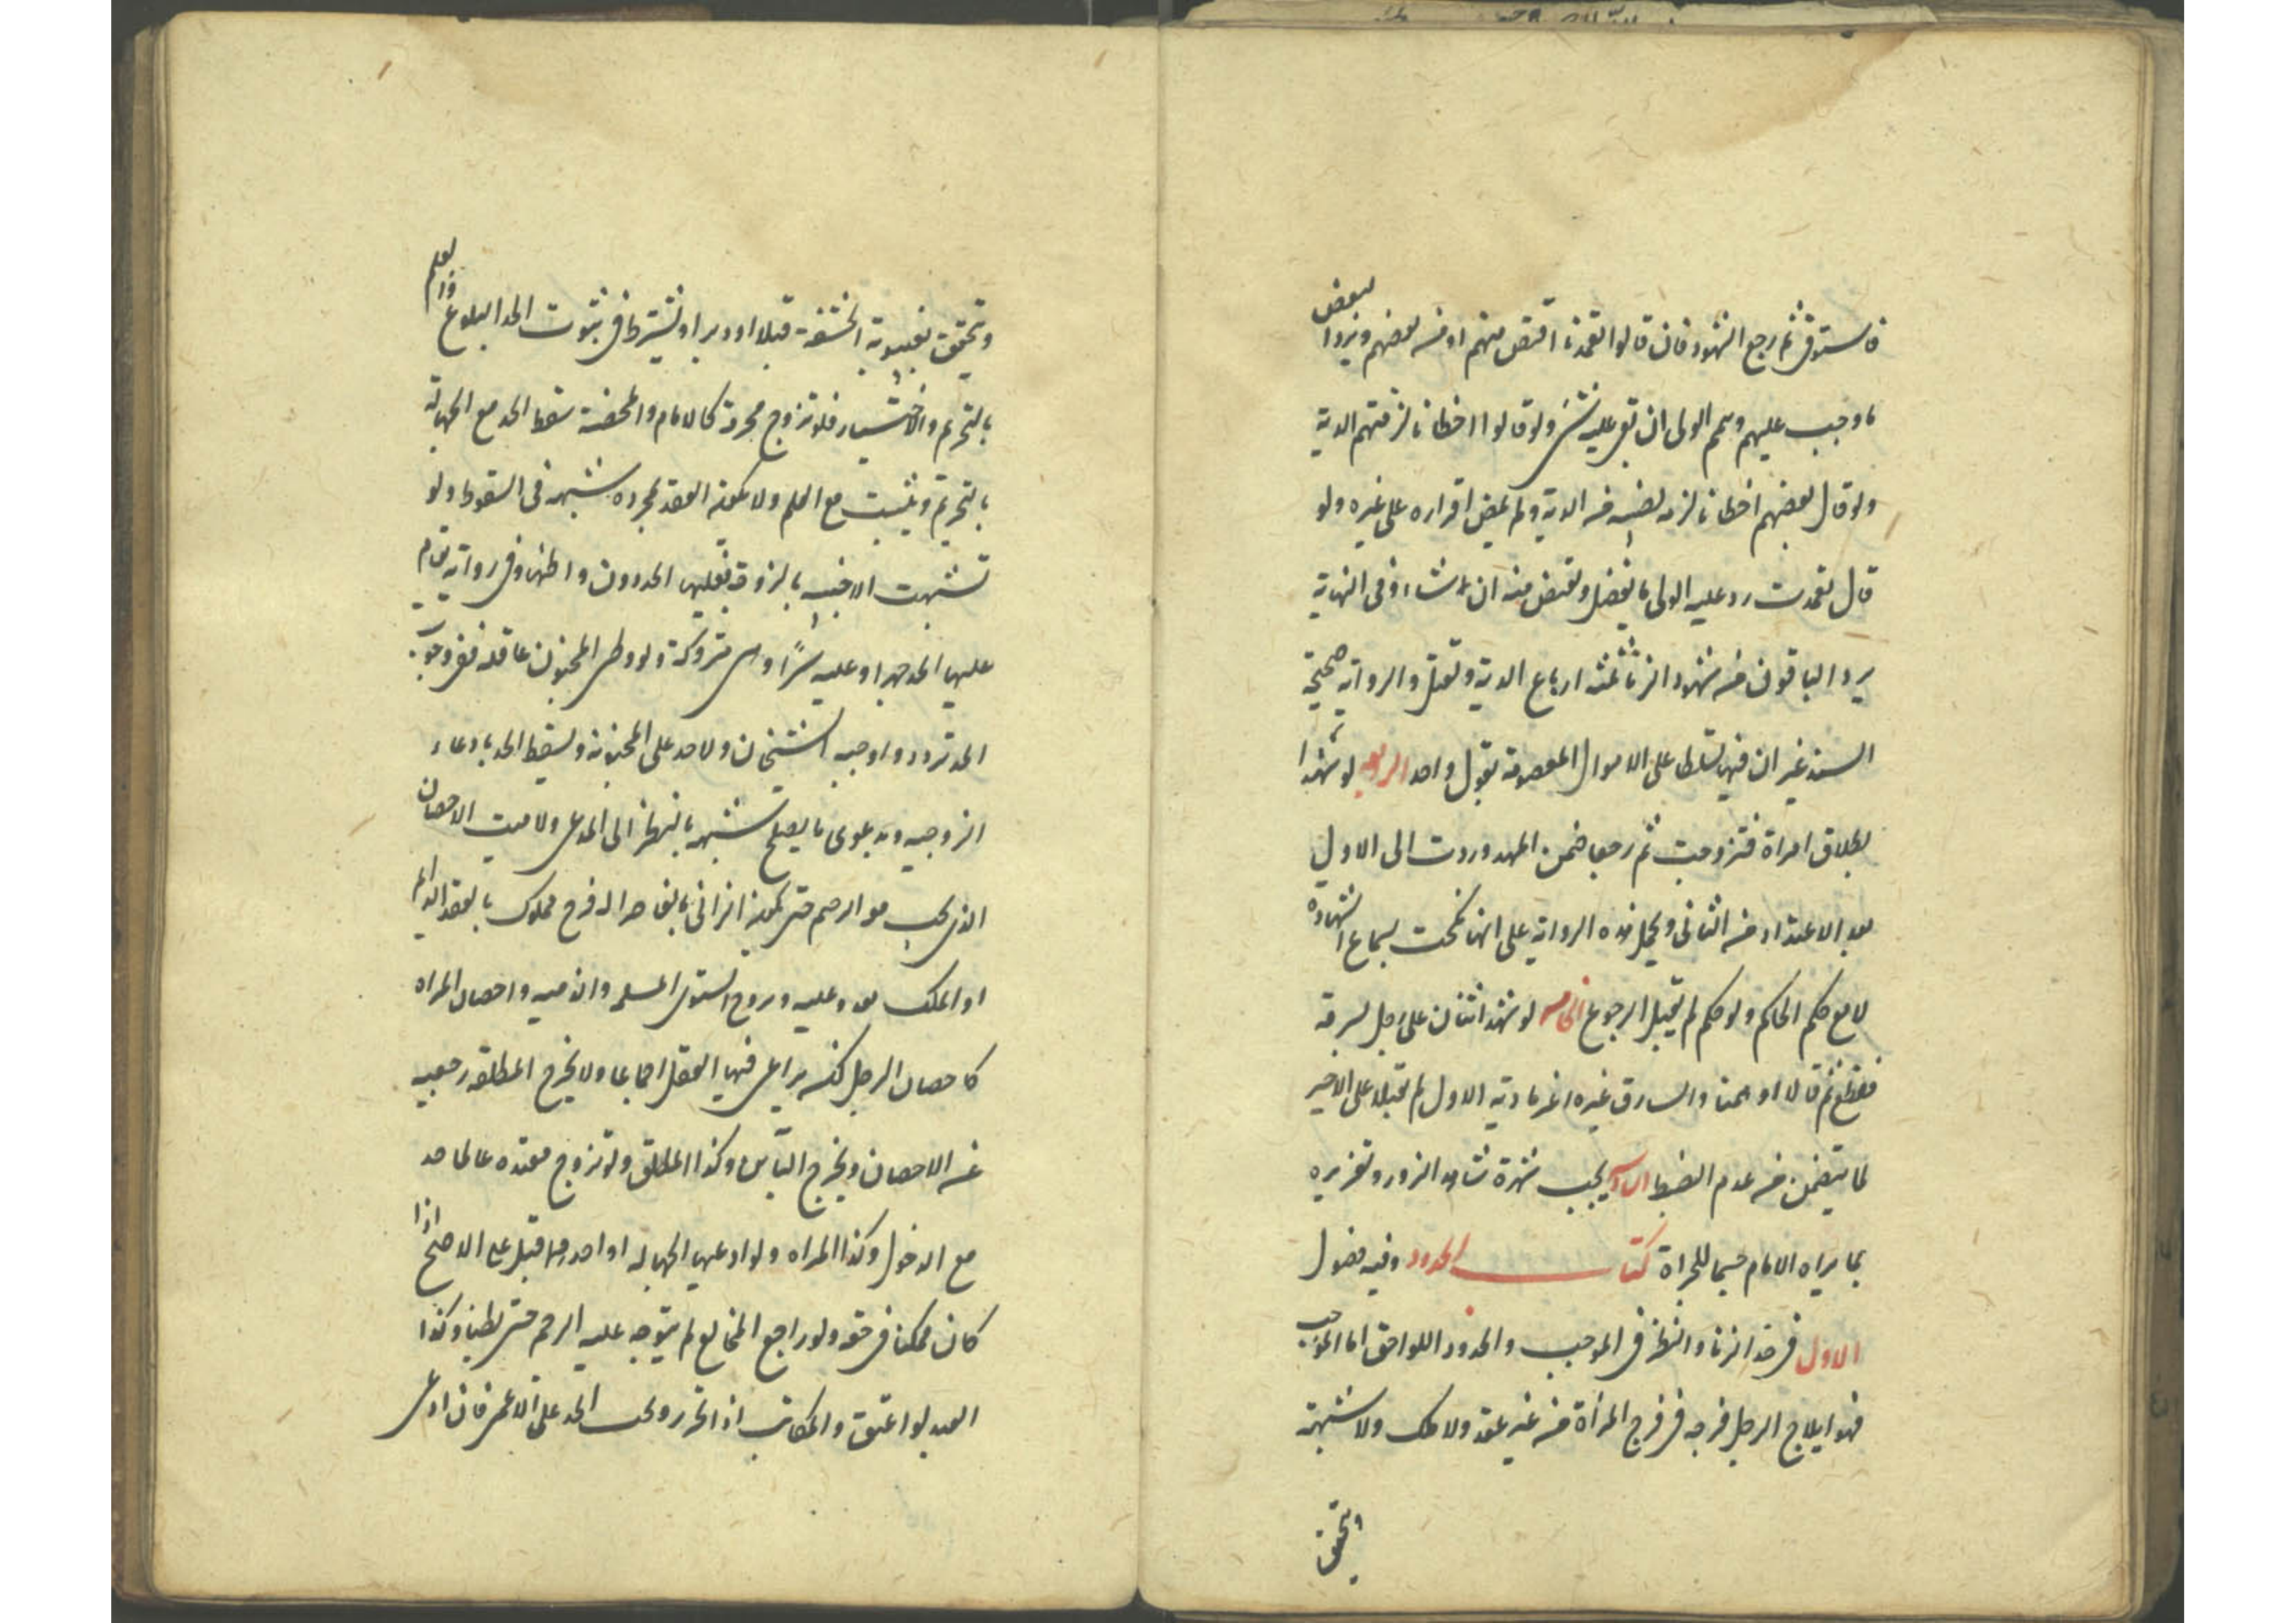 فاستوفى ثم رجع الشهود فان قالوا تعمدنا اقتص منهم او من بعضهم ويرد البعض
ما وجب عليهم ويتم الولى ان بقى عليه شىء ولو قالوا اخطانا لزمتهم الدية
ولو قال بعضهم اخطانا لزمه نصيبه من الدية ولم يمض اقراره على غيره ولو
قال تعمدت رد عليه الولى ما يفضل ويقتص منه ان شاء وفى النهاية
يرد الباقون من شهود الزنا ثلثة ارباع الدية ويقتل والرواية صحيحة
السند غير ان فيها تسلطا على الاموال المعصومة بقول واحد الرابعة لو شهدا
بطلاق امراة فتزوجت ثم رجعا ضمنا المهر وردت الى الاول
بعد الاعتداد من الثانى ويحمل هذه الرواية على انها نكحت بسماع الشهادة
لا مع حكم الحاكم ولو حكم لم يقبل الرجوع الخامسة لو شهد اثنان على رجل بسرقة
فقطع ثم قالا اوهمنا والسارق غيره اغرما دية الاول لم يقبلا على الاخير
لما يتضمن من عدم الضبط السادسة يجب شهرة شاهد الزور وتعزيره
بما يراه الامام حسما للجراة كتاب الحدود وفيه فصول
الاول فى حد الزنا والنظر فى الموجب والحدود اللواحق اما الموجب
فهو ايلاج الرجل فرجه فى فرج المرأة من غير عقد ولا ملك ولا شبهة
ويتحقق
ويتحقق بغيبوبة الحشفة قبلا او دبرا ويشترط فى ثبوت الحد البلوغ والعلم
بالتحريم والاختيار فلو تزوج محرمة كالام والمحصنة سقط الحد مع الجهالة
بالتحريم ويثبت مع العلم ولا يكون العقد بمجرده شبهة فى السقوط ولو
تشبهت الاجنبية بالزوجة فعليها الحد دون واطئها وفى رواية يقام
عليها الحد جهرا وعليه سرًا وهى متروكة ولو وطى المجنون عاقلة ففى وجوب
الحد تردد واوجبه الشيخان ولا حد على المجنونة ويسقط الحد بادعاء
الزوجية وبدعوى ما يصلح شبهة بالنظر الى المدعى ولا يثبت الاحصان
الذى يجب معه الرجم حتى يكون الزانى بالغا حرا له فرج مملوك بالعقد الدائم
او الملك يغدو عليه ويروح ويستوى المسلمة والذمية واحصان المراه
كاحصان الرجل لكن يراعى فيها العقل اجماعا ولا يخرج المطلقة رجعية
عن الاحصان ويخرج الباين وكذا المطلق ولو تزوج معتدة عالما حد
مع الدخول وكذا المراه ولو ادعيا الجهالة او احدهما قبل على الاصح اذا
كان ممكنا فى حقه ولو راجع المخالع لم يتوجه عليه الرجم حتى يطأ وكذا
العبد لو اعتق والمكاتب اذا تحرر ويجب الحد على الاعمى فان ادعى